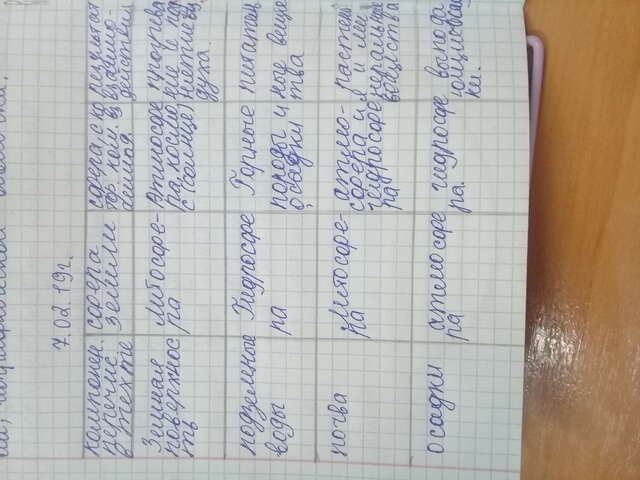 7.02.19г.
компонен. перечис. в тексте
сфера земли
сфера, с ко тор. ком. вз аимод.
результат взаимо- действия
Земная поверхнос ть
Литосфе- ра
Атмосфе ра, космо с (солнце)
прогрева ние и под нятие воз духа.
подземные воды
Гидросфе ра
Горные породы и осадки
питатель ные вещес тва
почва
Литосфе- ра
атмо- сфера и гидросфе ра
растени я и ми неральные вещества
осадки
атмосфе ра
гидросфе ра.
выпода ющие осад ки.